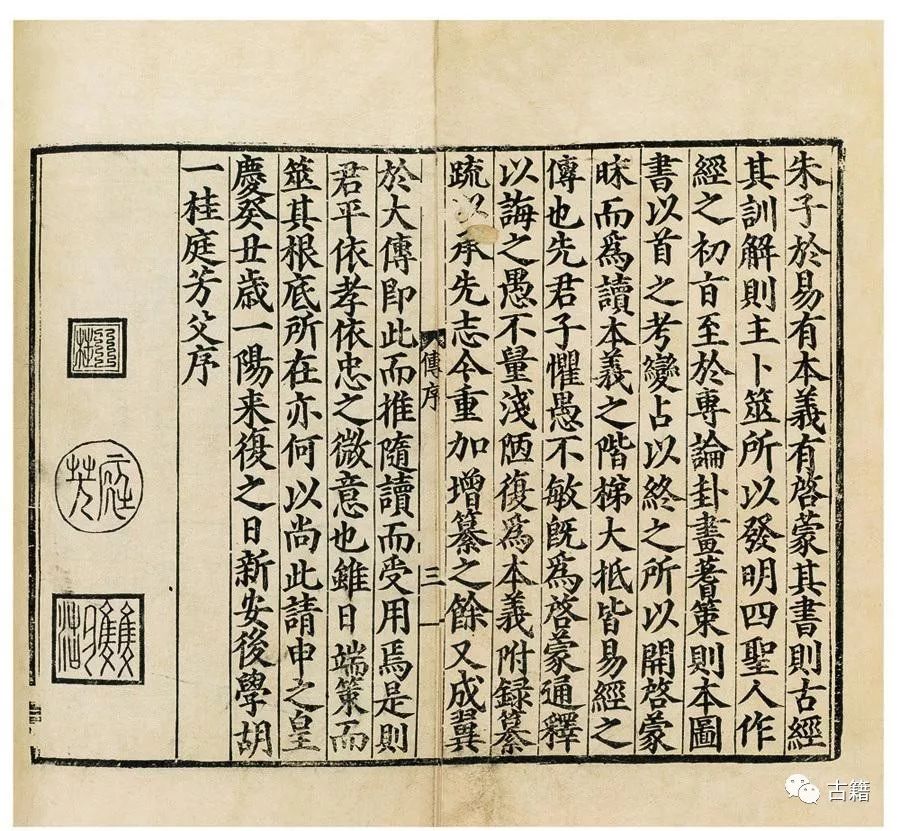 朱子於易有本義有啓蒙其書則古經
其訓解則主卜筮所以發明四聖人作
經之初旨至於專論卦畫蓍策則本圖
書以首之考變占以終之所以開啓蒙
昧而爲讀本義之階梯大抵皆易經之
傳也先君子懼愚不敏旣爲啓蒙通釋
以誨之愚不量淺陋復爲本義附録纂
疏以承先志今重加增纂之餘又成翼
傳序
三
於大傳即此而推隨讀而受用焉是則
君平依孝依忠之微意也雖日端策而
筮其根底所在亦何以尚此請申之皇
慶癸丑歲一陽来復之日新安後學胡
一桂庭芳父序
庭芳
雙湖
古籍